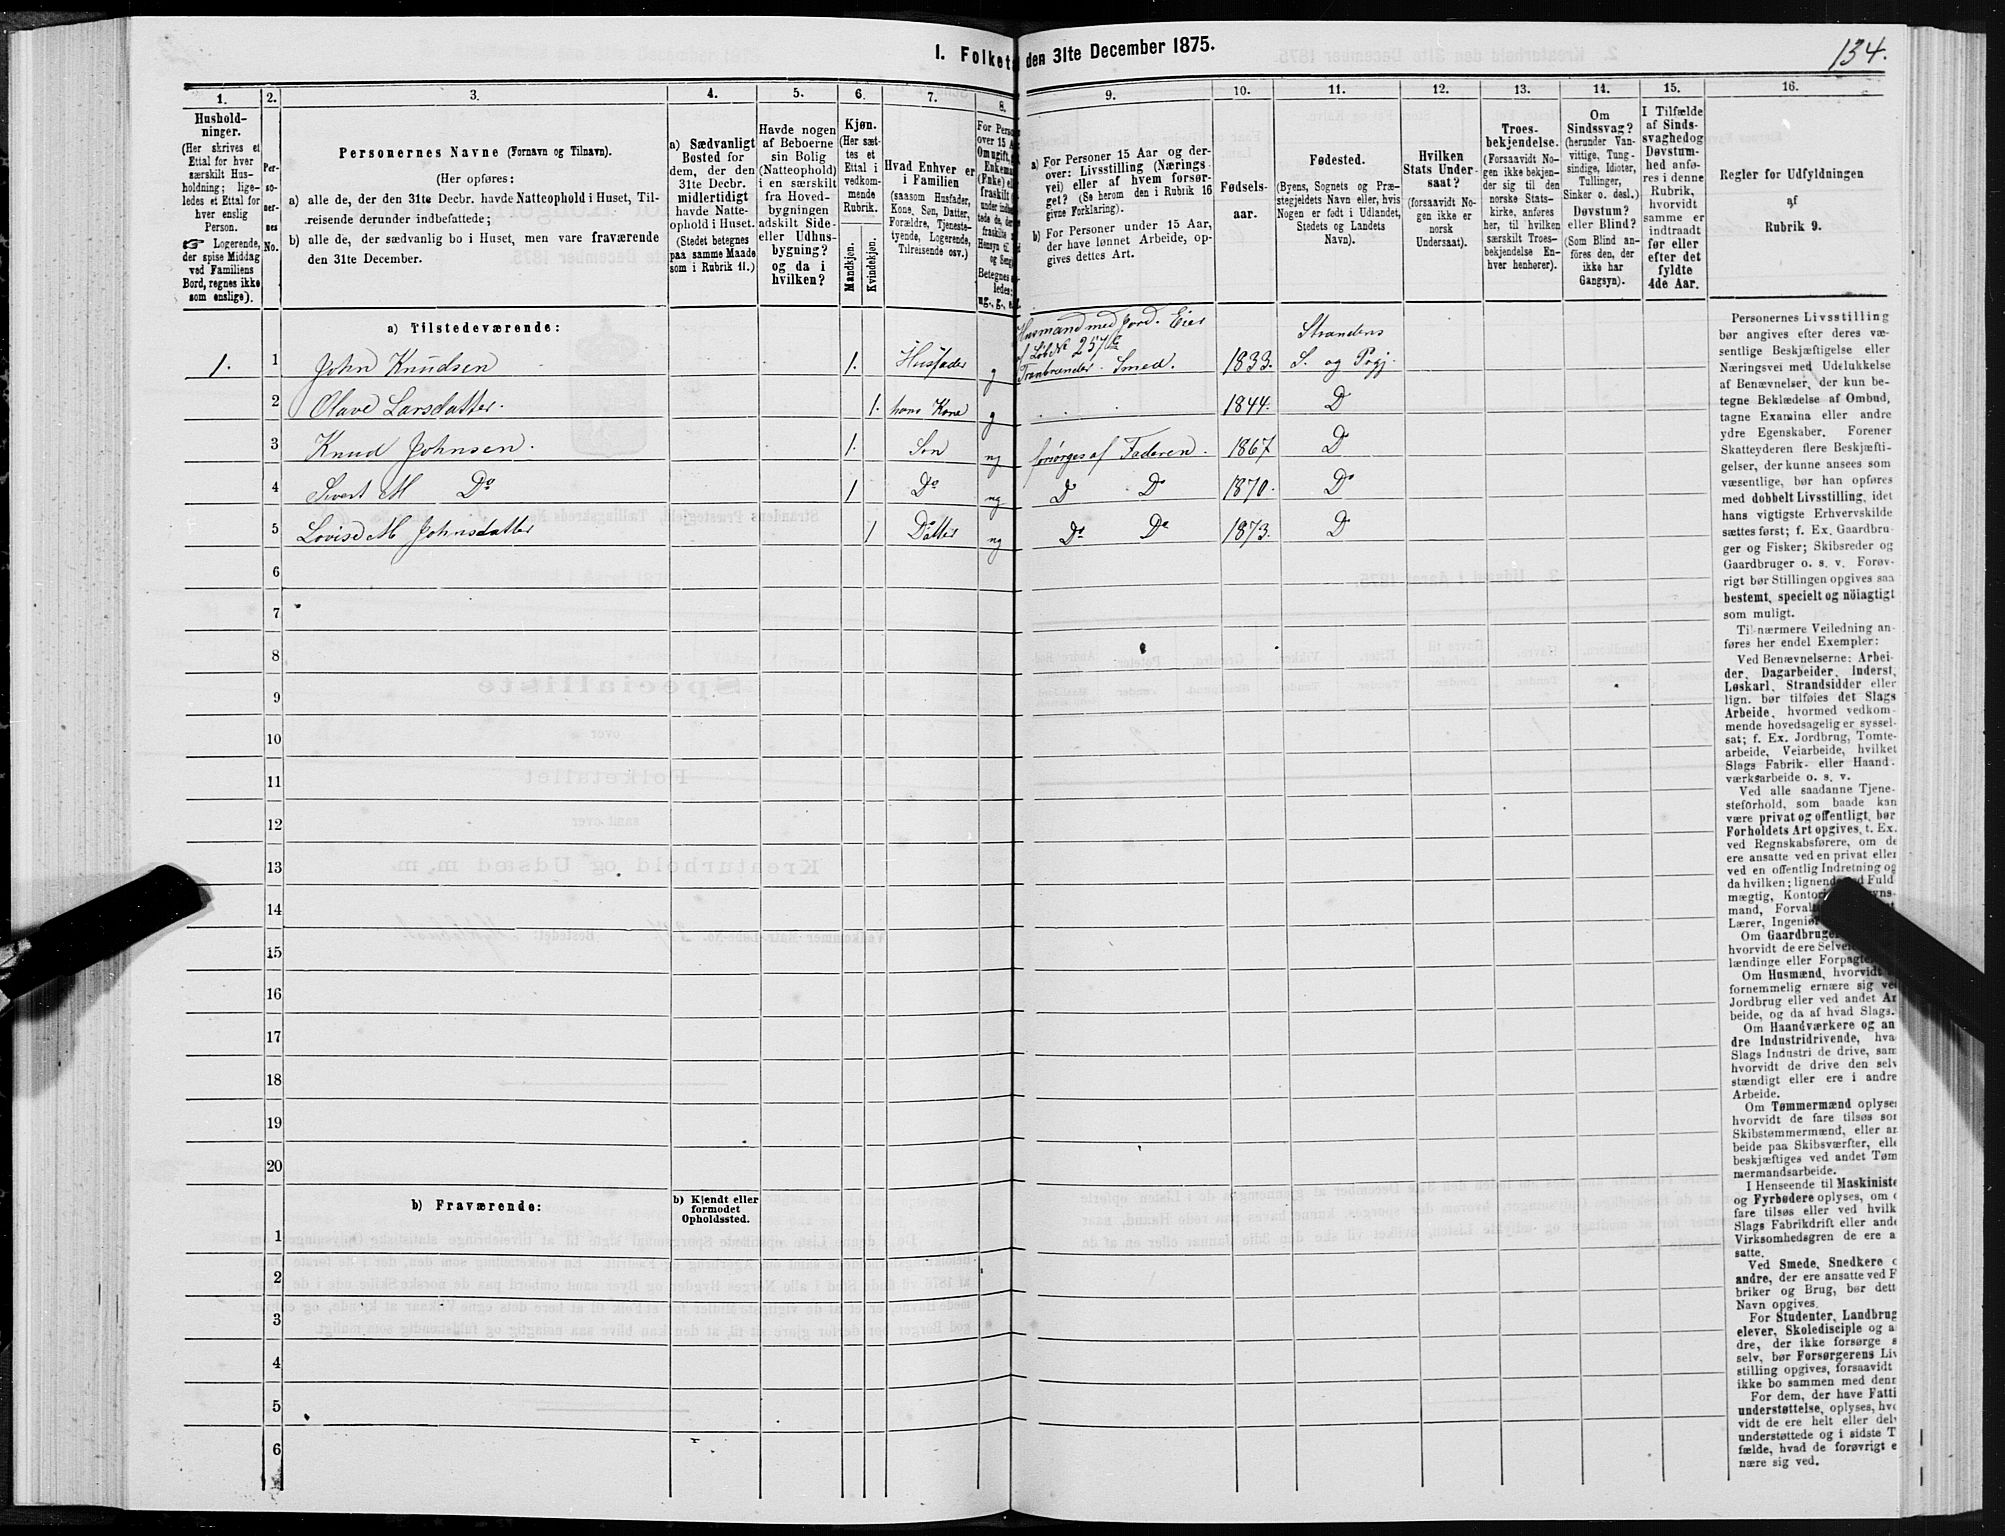 I. Folket den 31te December 1875.
134.
1.
2.
3.
4.
5.
6.
7.
8.
9.
10.
11.
12.
13.
14.
15.
16.
Hushold-
ninger.
(Her skrives et
Ettal for hver
særskilt Hus-
holdning; lige-
ledes et Ettal for
hver enslig
Person.
☞ Logerende,
der spise Middag
ved Familiens
Bord, regnes ikke
som enslige).
Per-
so-
ner-
nes
No.
Personernes Navne (Fornavn og Tilnavn).
(Her opføres:
a) alle de, der den 31te Decbr. havde Natteophold i Huset, Til-
reisende derunder indbefattede;
b) alle de, der sædvanlig bo i Huset, men vare fraværende
den 31te December.
a) Sædvanligt
Bosted for
dem, der den
31te Decbr.
midlertidigt
havde Natte-
ophold i Huset.
(Stedet betegnes
paa samme Maade
som i Rubrik 11.)
Havde nogen
af Beboerne
sin Bolig
(Natteophold)
i en særskilt
fra Hoved-
bygningen
adskilt Side-
eller Udhus-
bygning?
og da i
hvilken?
Kjøn.
(Her sæt-
tes et
Ettal i
vedkom-
mende
Rubrik.
Mandkjøn.
Kvindekjøn.
Hvad Enhver er
i Familien
(saasom Husfader,
Kone, Søn, Datter,
Forældre, Tjeneste-
tyende, Logerende,
Tilreisende osv.)
For Perso
over 15 A
Om ugift,
Enkema
(Enke) el
fraskilt
under
tede de,
fraskilte
Hensyn til
og Seng
Betegnes
ledes:
ug., g., e.
a) For Personer 15 Aar og der-
over: Livsstilling (Nærings-
vei) eller af hvem forsør-
get? (Se herom den i Rubrik 16
givne Forklaring).
b) For Personer under 15 Aar,
der have lønnet Arbeide, op-
gives dettes Art.
Fødsels-
aar.
Fødested.
(Byens, Sognets og Præ-
stegjeldets Navn eller, hvis
Nogen er født i Udlandet,
Stedets og Landets
Navn).
Hvilken
Stats Under-
saat?
(forsaavidt No-
gen ikke er
norsk
Undersaat).
Troes-
bekjendelse.
(Forsaavidt No-
gen ikke bekjen-
der sig til den
norske Stats-
kirke, anføres
her, til hvilken
særskilt Troes-
bekjendelse En-
hver henhører).
Om
Sindssvag?
(herunder Van-
vittige, Tung-
sindige, Idioter,
Tullinger,
Sinker o. desl.)
Døvstum?
eller Blind?
(Som Blind an-
føres den, der
ikke har
Gangsyn).
I Tilfælde
af Sinds-
svaghedog
Døvstum-
hed anfø-
res i denne
Rubrik,
hvorvidt
samme er
indtraadt
før eller
efter det
fyldte
4de Aar.
Regler for Udfyldningen
af
Rubrik 9.
a) Tilstedeværende:
Husmand med Jord. Eier
af LøbNo 257
Strandens
1. 1 John Knudsen 1. Husfader g Tranbrænder. Smed. 1833. S. og Prgj.
2 Olave Larsdatter. 1. hans Kone g 1844. D
3 Knud Johnsen. 1. Søn ug forsørges af Faderen. 1867 D
4 Sivert M Do 1 Do ug D D 1870. Do
5 Lovise M Johnsdatter 1 Datter ug Do Do 1873. D
6
7
8
9
10
11
12
13
14
15
16
17
18
19
20
b) Fraværende:
b) Kjendt eller
formodet
Opholdssted.
1
2
3
4
5
6
Personernes Livsstilling
bør angives efter deres væ-
sentlige Beskjæftigelse eller
Næringsvei med Udelukkelse
af Benævnelser, der kun be-
tegne Beklædelse af Ombud,
tagne Examina eller andre
ydre Egenskaber. Forener
Skatteyderen flere Beskjæfti-
gelser, der kunne ansees som
væsentlige, bør han opføres
med dobbelt Livsstilling, idet
hans vigtigste Erhvervskilde
sættes først; f. Ex. Gaardbru-
ger og Fisker; Skibsreder og
Gaardbruger o. s. v. Forøv-
rigt bør Stillingen opgives saa
bestemt, specielt og nöiagtigt
som muligt.
Til nærmere Veiledning an-
føres her endel Exempler:
Ved Benævnelserne: Arbei-
der, Dagarbeider, Inderst,
Løskarl, Strandsidder eller
lign. bør tilføies det Slags
Arbeide, hvormed vedkom-
mende hovedsagelig er syssel-
sat; f. Ex. Jordbrug, Tomte-
arbeide, Veiarbeide, hvilket
Slags Fabrik- eller Haand-
værksarbeide o. s. v.
Ved alle saadanne Tjene-
steforhold, som baade kan
være privat og offentligt, bør
Forholdets Art opgives, t. Ex.
ved Regnskabsførere, om de
ere ansatte ved en privat eller
ved en offentlig Indretning og
da hvilken; lignende ved Fuld-
mægtig,
mand,
Lærer,
Om Gaardbruger
hvorvidt de ere
lændinge eller
Om Husmænd, hvorvidt
fornemmelig ernære sig ve
Jordbrug eller ved andet Ar
beide, og da af hvad Slags.
Om Haandværkere og an
dre Industridrivende, hva
Slags Industri de drive, sam
hvorvidt de drive den selv
stændigt eller ere i andre
Arbeide.
Om Tømmermænd oplyses
hvorvidt de fare tilsøs som
Skibstømmermænd, eller ar
beide paa Skibsværfter, elle
beskjæftiges ved andet Tøm
mermandsarbeide.
I Henseende til Maskiniste
og Fyrbødere oplyses, om d
fare tilsøs eller ved hvilk
Slags Fabrikdrift eller ande
Virksomhedsgren de ere a
satte.
Ved Smede, Snedkere o
andre, der ere ansatte ved F
briker og Brug, bør dett
Navn opgives.
For Studenter, Landbrug
elever, Skoledisciple og a
dre, der ikke forsørge s
selv, bør Forsørgerens Liv
stilling opgives, forsaavidt
ikke bo sammen med denn
For dem, der have Fatti
understøttelse, oplyses, hvo
vidt de ere helt eller delv
understøttede og i sidste T
fælde, hvad de forøvrigt e
nære sig ved.